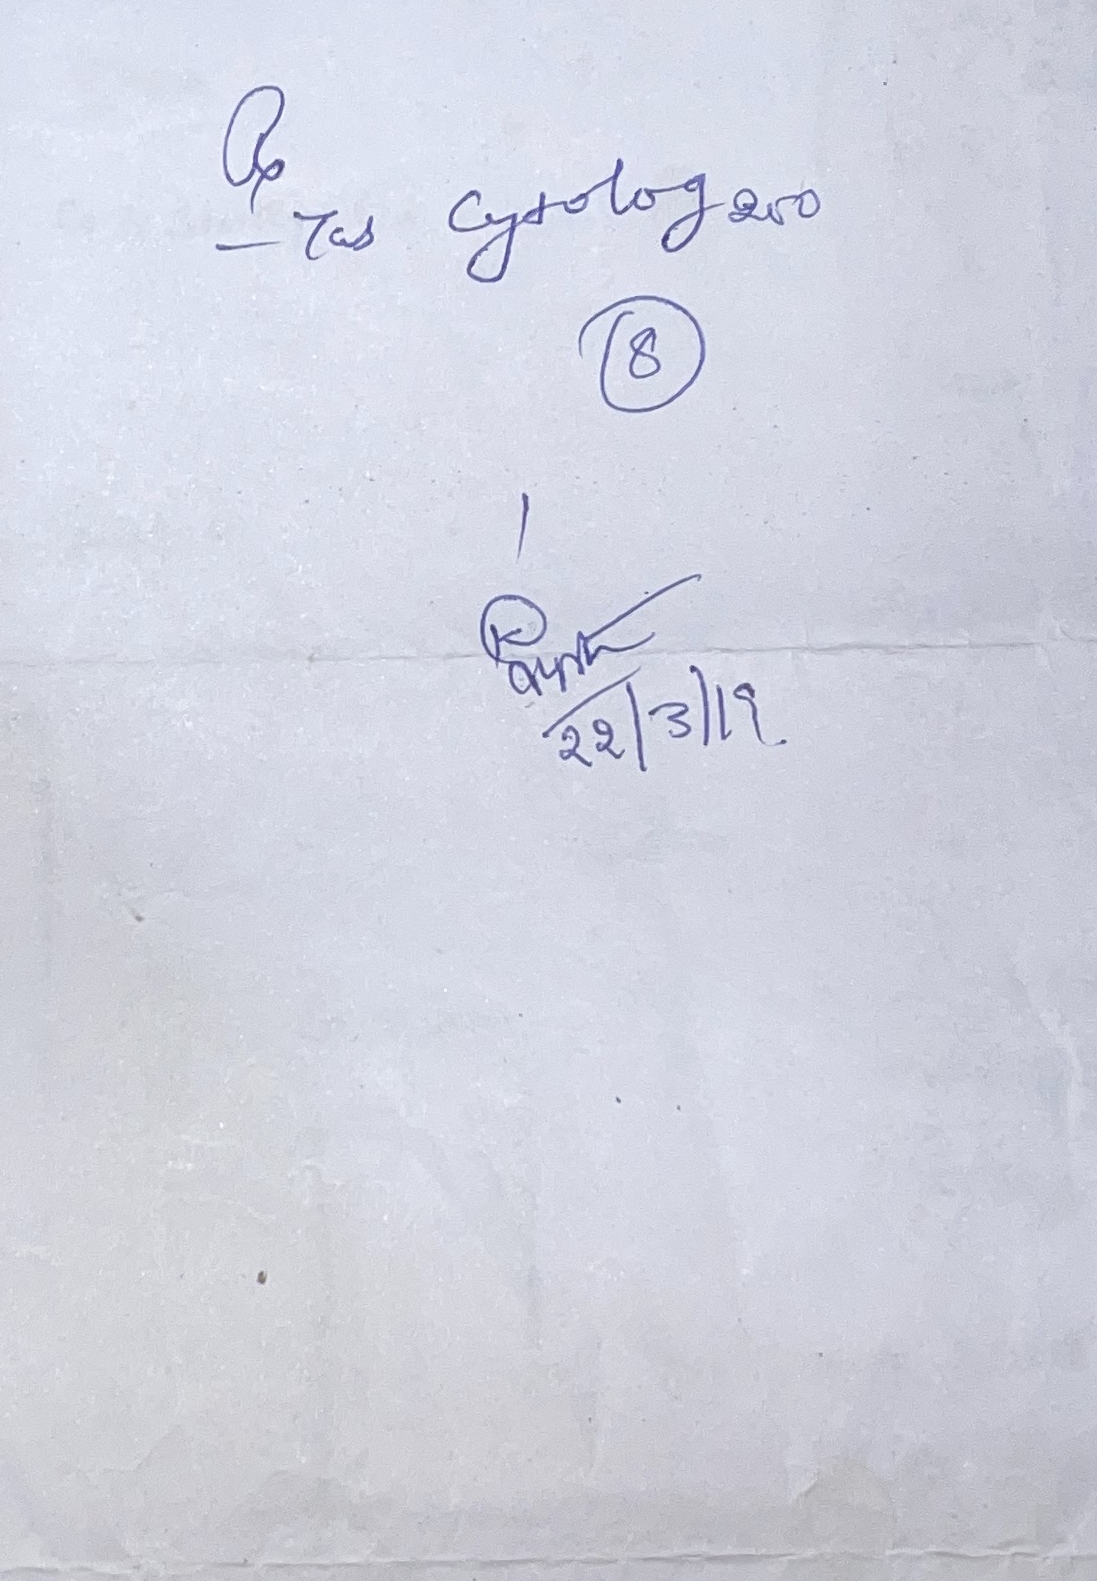 Rx
- Tab Cytolog 200
8
22/3/19.